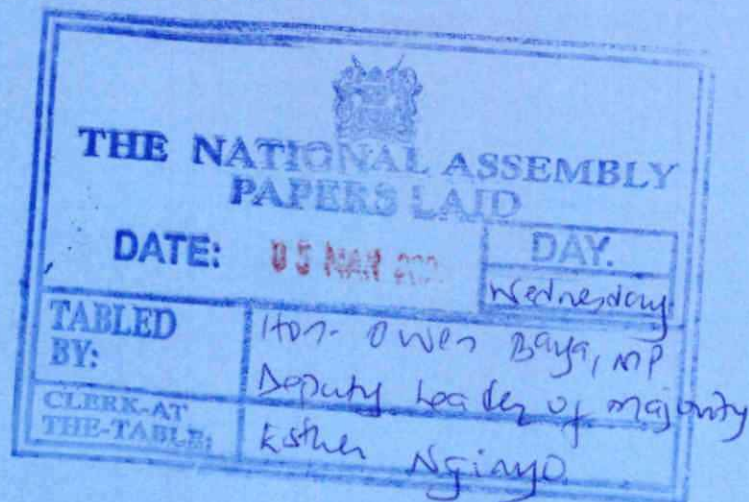 THE NATIONAL ASSEMBLY
PAPERS LAID
DATE: 05 MAR
DAY.
Wednesday
TABLED BY:
Hon. Owen Baya, MP
Deputy Leader of Majority
CLERK-AT
THE-TABLE:
Esther Nginyo